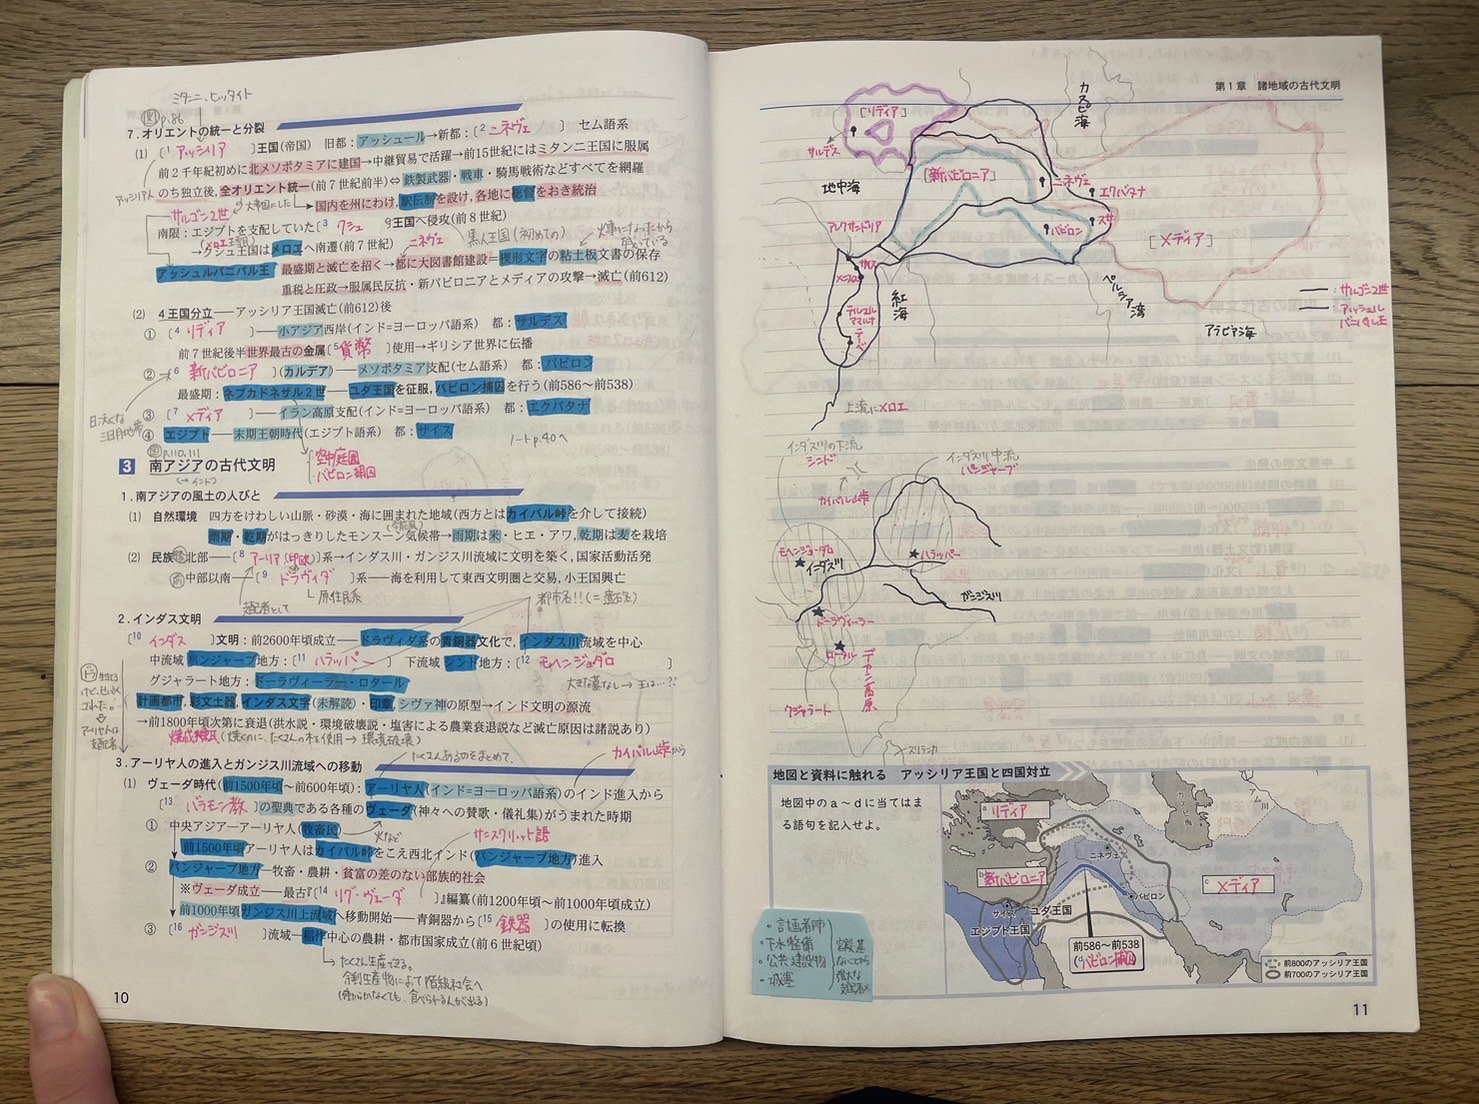 ミタンニ、ヒッタイト
図p.86
7.オリエントの統一と分裂
(1)〔1 アッシリア 〕王国(帝国) 旧都：アッシュール→新都：〔2 ニネヴェ 〕 セム語系
前2千年紀初めに北メソポタミアに建国→中継貿易で活躍→前15世紀にはミタンニ王国に服属
アッシリア人
のち独立後, 全オリエント統一(前7世紀前半)⇔鉄製武器・戦車・騎馬戦術などすべてを網羅
大帝国にした
→国内を州にわけ, 駅伝制を設け, 各地に総督をおき統治
サルゴン2世
南限：エジプトを支配していた〔3 クシュ 〕王国へ侵攻(前8世紀)
黒人王国(初めての)
火事になったから残っている
(メロエ王朝)
→クシュ王国はメロエへ南遷(前7世紀)
ニネヴェ
アッシュルバニパル王 最盛期と滅亡を招く→都に大図書館建設＝楔形文字の粘土板文書の保存
重税と圧政→服属民反抗・新バビロニアとメディアの攻撃→滅亡(前612)
(2) 4王国分立──アッシリア王国滅亡(前612)後
①〔4 リディア 〕──小アジア西岸(インド=ヨーロッパ語系) 都：サルデス
前7世紀後半世界最古の金属〔5 貨幣 〕使用→ギリシア世界に伝播
②〔6 新バビロニア 〕(カルデア)──メソポタミア支配(セム語系) 都：バビロン
最盛期：ネブカドネザル2世──ユダ王国を征服, バビロン捕囚を行う(前586～前538)
③〔7 メディア 〕──イラン高原支配(インド=ヨーロッパ語系) 都：エクバタナ
④ エジプト──末期王朝時代(エジプト語系) 都：サイス
ノートp.40へ
肥沃な三日月地帯
図p.110,111
空中庭園
バビロン捕囚
3 南アジアの古代文明
(→インド)
1.南アジアの風土の人びと
(1) 自然環境 四方をけわしい山脈・砂漠・海に囲まれた地域(西方とはカイバル峠を介して接続)
雨期・乾期がはっきりしたモンスーン気候帯→雨期は米・ヒエ・アワ, 乾期は麦を栽培
(2) 民族 北部──〔8 アーリア(印欧) 〕系→インダス川・ガンジス川流域に文明を築く, 国家活動活発
南 中部以南──〔9 ドラヴィダ 〕系──海を利用して東西文明圏と交易, 小王国興亡
原住民系
支配者として
都市名!!(＝遺跡名)
2.インダス文明
〔10 インダス 〕文明：前2600年頃成立──ドラヴィダ系の青銅器文化で, インダス川流域を中心
中流域パンジャーブ地方：〔11 ハラッパー 〕 下流域シンド地方：〔12 モヘンジョ=ダロ 〕
グジャラート地方：ドーラヴィーラー・ロータル
大きな墓なし→王は…??
計画都市, 彩文土器, インダス文字(未解読)・印章, シヴァ神の原型→インド文明の源流
→前1800年頃次第に衰退(洪水説・環境破壊説・塩害による農業衰退説など滅亡原因は諸説あり)
焼成煉瓦(焼くのに、たくさんの木を使用→環境破壊)
アーリヤ人は支配者
たくさんあるのをまとめて。
カイバル峠から
3.アーリヤ人の進入とガンジス川流域への移動
(1) ヴェーダ時代(前1500年頃～前600年頃)：アーリヤ人(インド=ヨーロッパ語系)のインド進入から
〔13 バラモン教 〕の聖典である各種のヴェーダ(神々への賛歌・儀礼集)がうまれた時期
① 中央アジアーアーリヤ人(牧畜民)
火など
サンスクリット語
前1500年頃アーリヤ人はカイバル峠をこえ西北インド(パンジャーブ地方)進入
② パンジャーブ地方─牧畜・農耕・貧富の差のない部族的社会
※ヴェーダ成立──最古『〔14 リグ・ヴェーダ 〕』編纂(前1200年頃～前1000年頃成立)
前1000年頃ガンジス川上流域へ移動開始──青銅器から〔15 鉄器 〕の使用に転換
③〔16 ガンジス川 〕流域─稲作中心の農耕・都市国家成立(前6世紀頃)
→たくさん生産できる。
余剰生産物によって階級社会へ
(働かなくても、食べられる人が出る)
10
第1章 諸地域の古代文明
[リディア]
サルデス
カスピ海
地中海
[新バビロニア]
ニネヴェ
エクバタナ
スサ
バビロン
[メディア]
アレクサンドリア
サイス
メンフィス
テル=エル=アマルナ
テーベ
紅海
ペルシア湾
アラビア海
：サルゴン2世
：アッシュルバニパル王
上流にメロエ
インダス川の下流
シンド
インダス川中流
パンジャーブ
カイバル峠
モヘンジョ・ダロ
インダス川
ハラッパー
ガンジス川
ドーラヴィーラー
ロータル
デカン高原
グジャラート
スリランカ
地図と資料に触れる アッシリア王国と四国対立
地図中のa～dに当てはま
る語句を記入せよ。
a リディア
ニネヴェ
b 新バビロニア
バビロン
c メディア
サイス
ユダ王国
エジプト王国
前586～前538
(d バビロン捕囚)
アム川
前800のアッシリア王国
前700のアッシリア王国
・計画都市
・下水整備
・公共建設物
・城塞
宮殿、墓
ないことから
強大な
支配者×
11